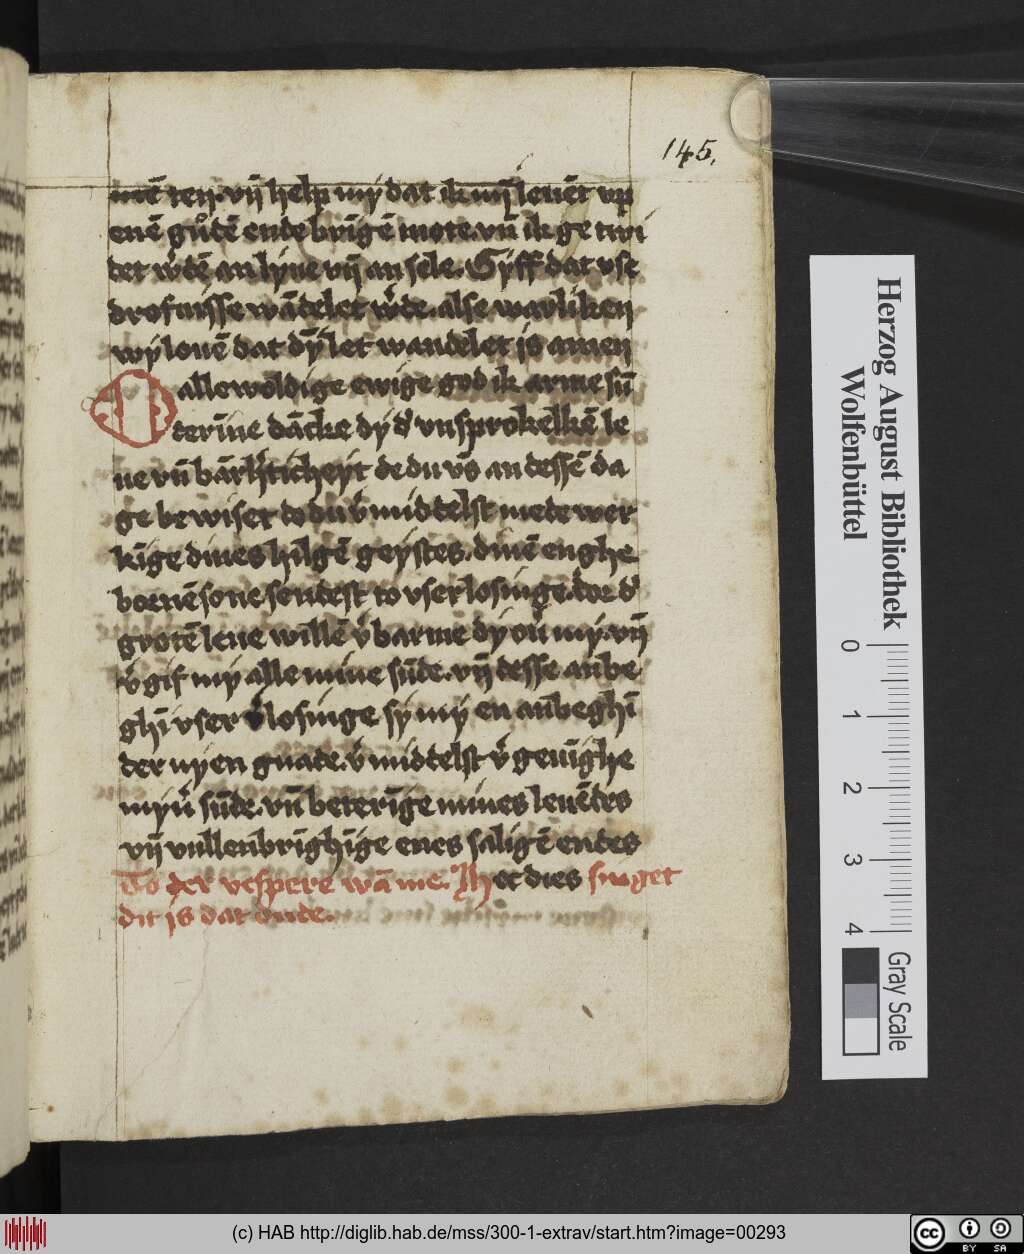 145.
mē ren. vn̄ help my dat ik mȳ leuēt vp
enē gůdē ende brīgē mote. vn̄ ik ge twi
det w'dē an lyue vn̄ an sele. Gyff dat vse
drofnisse wādelet w'de. alse warliken
wy louē dat dȳ let wandelet is amen
O allewoldige ewige god ik arme sū
derīne dācke dy d' vnsprokelkē le
ue vn̄ bārh'ticheyt de du vs an dessē da
ge bewiset do du v'middelst mede wer
kīge dines hilgē geystes. dinē enghe
bornē sone sendest to vser losinge. dor d'
grotē leue willē v'barme dy ou' my. vn̄
v'gif my alle mine sūde. vn̄ desse anbe
ghī vser losinge sy my en anbeghī
der nyen gnade. v'middelst v'geuīghe
myn' sūde. vn̄ beterīge mines leuēdes
vn̄ vullenbrīghīge enes saligē endes
To der vespere wā me. Hec dies singet
dit is dat
Herzog August Bibliothek
Wolfenbüttel
0 1 2 3 4
Gray Scale
(c) HAB http://diglib.hab.de/mss/300-1-extrav/start.htm?image=00293
cc BY SA